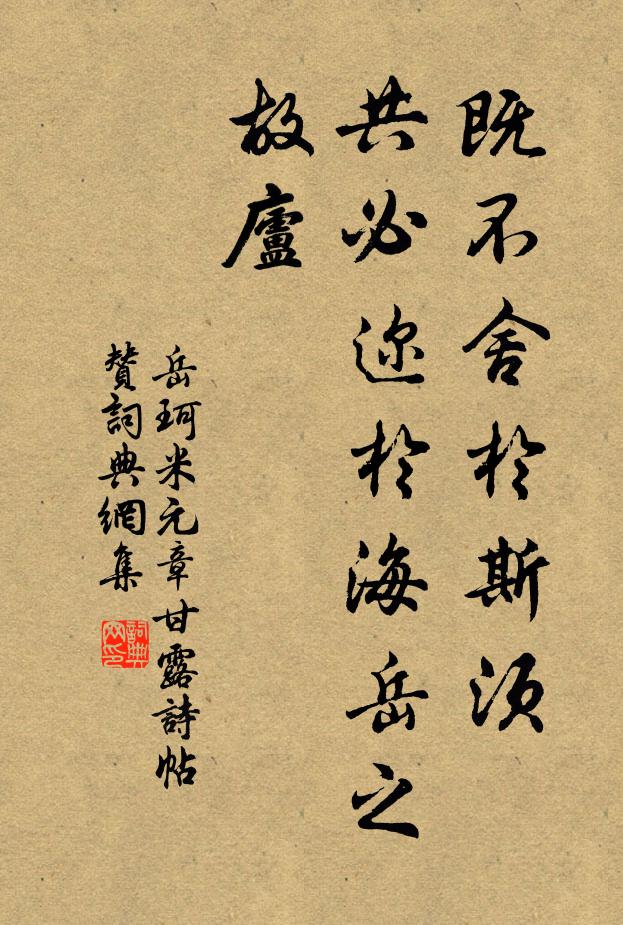 既不舍於斯須
共必迩於海岳之
故廬
岳珂米元章甘露詩帖
贊詞典網集
詞典網印